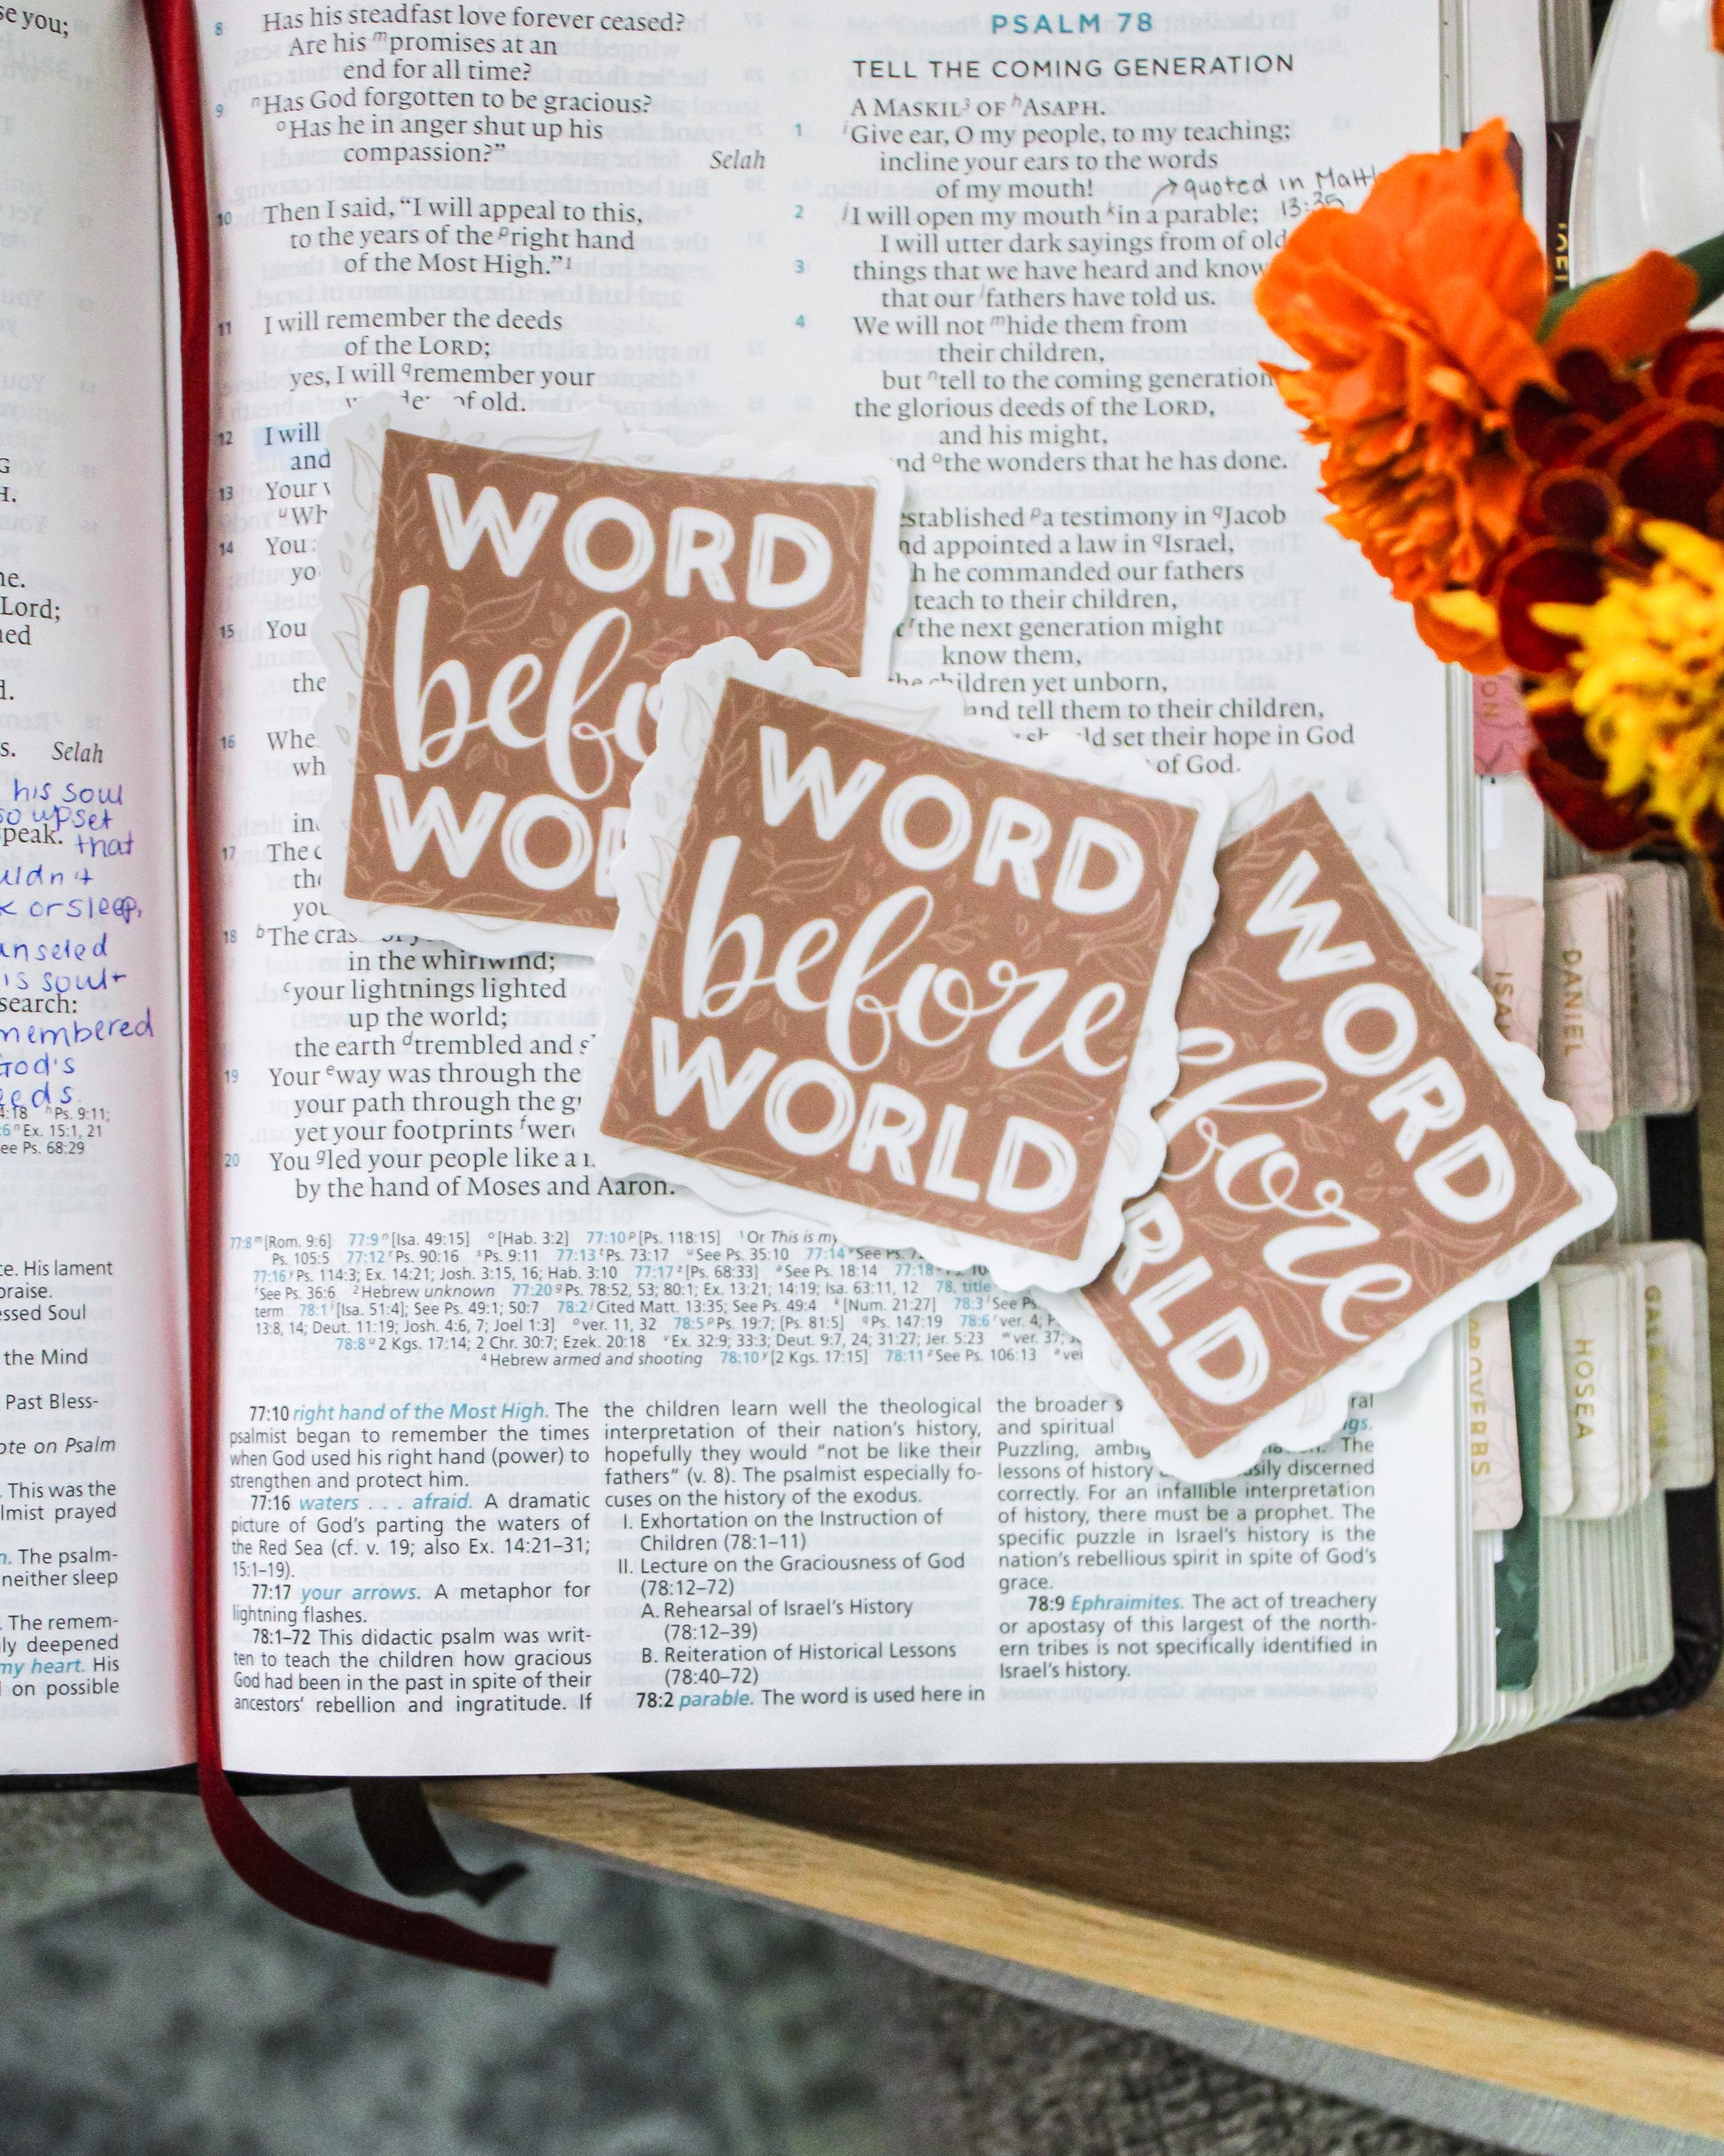 se you;
G
H.
ne.
Lord;
ned
d.
s. Selah
his soul
so upset
speak. that
k or sleep.
is soul +
search:
God's
4:18 h Ps. 9:11;
6 n Ex. 15:1, 21
ee Ps. 68:29
ce. His lament
praise.
essed Soul
the Mind
Past Bless-
ote on Psalm
This was the
lmist prayed
n. The psalm-
neither sleep
The remem-
ly deepened
my heart. His
on possible
8 Has his steadfast love forever ceased?
Are his m promises at an
end for all time?
9 n Has God forgotten to be gracious?
o Has he in anger shut up his
compassion?” Selah
10 Then I said, “I will appeal to this,
to the years of the p right hand
of the Most High.”1
11 I will remember the deeds
of the LORD;
yes, I will q remember your
of old.
12 I will
and
13 Your
u Wh
14 You
yo
15 You
the
16 Whe
wh
in
17 The c
the
you
18 b The cras
in the whirlwind;
c your lightnings lighted
up the world;
the earth d trembled and s
19 Your e way was through the
your path through the g
yet your footprints f were
20 You g led your people like a
by the hand of Moses and Aaron.
PSALM 78
TELL THE COMING GENERATION
A MASKIL3 OF h ASAPH.
1 i Give ear, O my people, to my teaching;
incline your ears to the words
of my mouth! → quoted in Matt
2 j I will open my mouth k in a parable; 13:35
I will utter dark sayings from of old
3 things that we have heard and know
that our l fathers have told us.
4 We will not m hide them from
their children,
but n tell to the coming generation
the glorious deeds of the LORD,
and his might,
nd o the wonders that he has done.
established p a testimony in q Jacob
nd appointed a law in q Israel,
h he commanded our fathers
teach to their children,
the next generation might
know them,
children yet unborn,
and tell them to their children,
ld set their hope in God
of God.
WORD
befo
WOR
WORD
before
WORLD
WORD
before
RLD
77:8 m [Rom. 9:6] 77:9 n [Isa. 49:15] o [Hab. 3:2] 77:10 p [Ps. 118:15] 1 Or This is my
Ps. 105:5 77:12 r Ps. 90:16 s Ps. 9:11 77:13 t Ps. 73:17 u See Ps. 35:10 77:14 v See Ps. 7
77:16 y Ps. 114:3; Ex. 14:21; Josh. 3:15, 16; Hab. 3:10 77:17 z [Ps. 68:33] a See Ps. 18:14 77:18
See Ps. 36:6 2 Hebrew unknown 77:20 g Ps. 78:52, 53; 80:1; Ex. 13:21; 14:19; Isa. 63:11, 12 78, title
term 78:1 i [Isa. 51:4]; See Ps. 49:1; 50:7 78:2 j Cited Matt. 13:35; See Ps. 49:4 k [Num. 21:27] 78:3 l See Ps.
13:8, 14; Deut. 11:19; Josh. 4:6, 7; Joel 1:3] o ver. 11, 32 78:5 p Ps. 19:7; [Ps. 81:5] q Ps. 147:19 78:6 r ver. 4;
78:8 u 2 Kgs. 17:14; 2 Chr. 30:7; Ezek. 20:18 v Ex. 32:9; 33:3; Deut. 9:7, 24; 31:27; Jer. 5:23 w ver. 37;
4 Hebrew armed and shooting 78:10 y [2 Kgs. 17:15] 78:11 z See Ps. 106:13 a ver
77:10 right hand of the Most High. The
psalmist began to remember the times
when God used his right hand (power) to
strengthen and protect him.
77:16 waters . . . afraid. A dramatic
picture of God’s parting the waters of
the Red Sea (cf. v. 19; also Ex. 14:21–31;
15:1–19).
77:17 your arrows. A metaphor for
lightning flashes.
78:1–72 This didactic psalm was writ-
ten to teach the children how gracious
God had been in the past in spite of their
ancestors’ rebellion and ingratitude. If
the children learn well the theological
interpretation of their nation’s history,
hopefully they would “not be like their
fathers” (v. 8). The psalmist especially fo-
cuses on the history of the exodus.
I. Exhortation on the Instruction of
Children (78:1–11)
II. Lecture on the Graciousness of God
(78:12–72)
A. Rehearsal of Israel’s History
(78:12–39)
B. Reiteration of Historical Lessons
(78:40–72)
78:2 parable. The word is used here in
the broader s ral
and spiritual gs.
Puzzling, ambig The
lessons of history easily discerned
correctly. For an infallible interpretation
of history, there must be a prophet. The
specific puzzle in Israel’s history is the
nation’s rebellious spirit in spite of God’s
grace.
78:9 Ephraimites. The act of treachery
or apostasy of this largest of the north-
ern tribes is not specifically identified in
Israel’s history.
ISA
DANIEL
PROVERBS
HOSEA